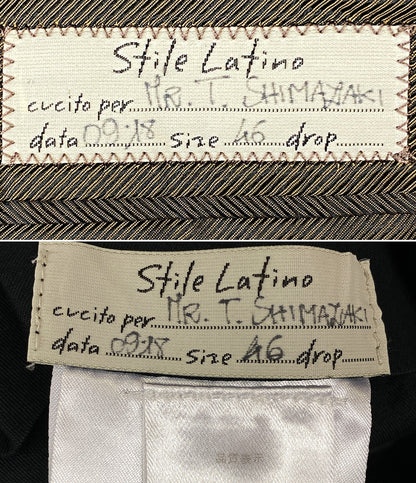 Stile Latino
cucito per MR. T. SHIMAZAKI
data 09.18 size 46 drop
Stile Latino
cucito per MR. T. SHIMAZAKI
data 09.18 size 46 drop
品質表示